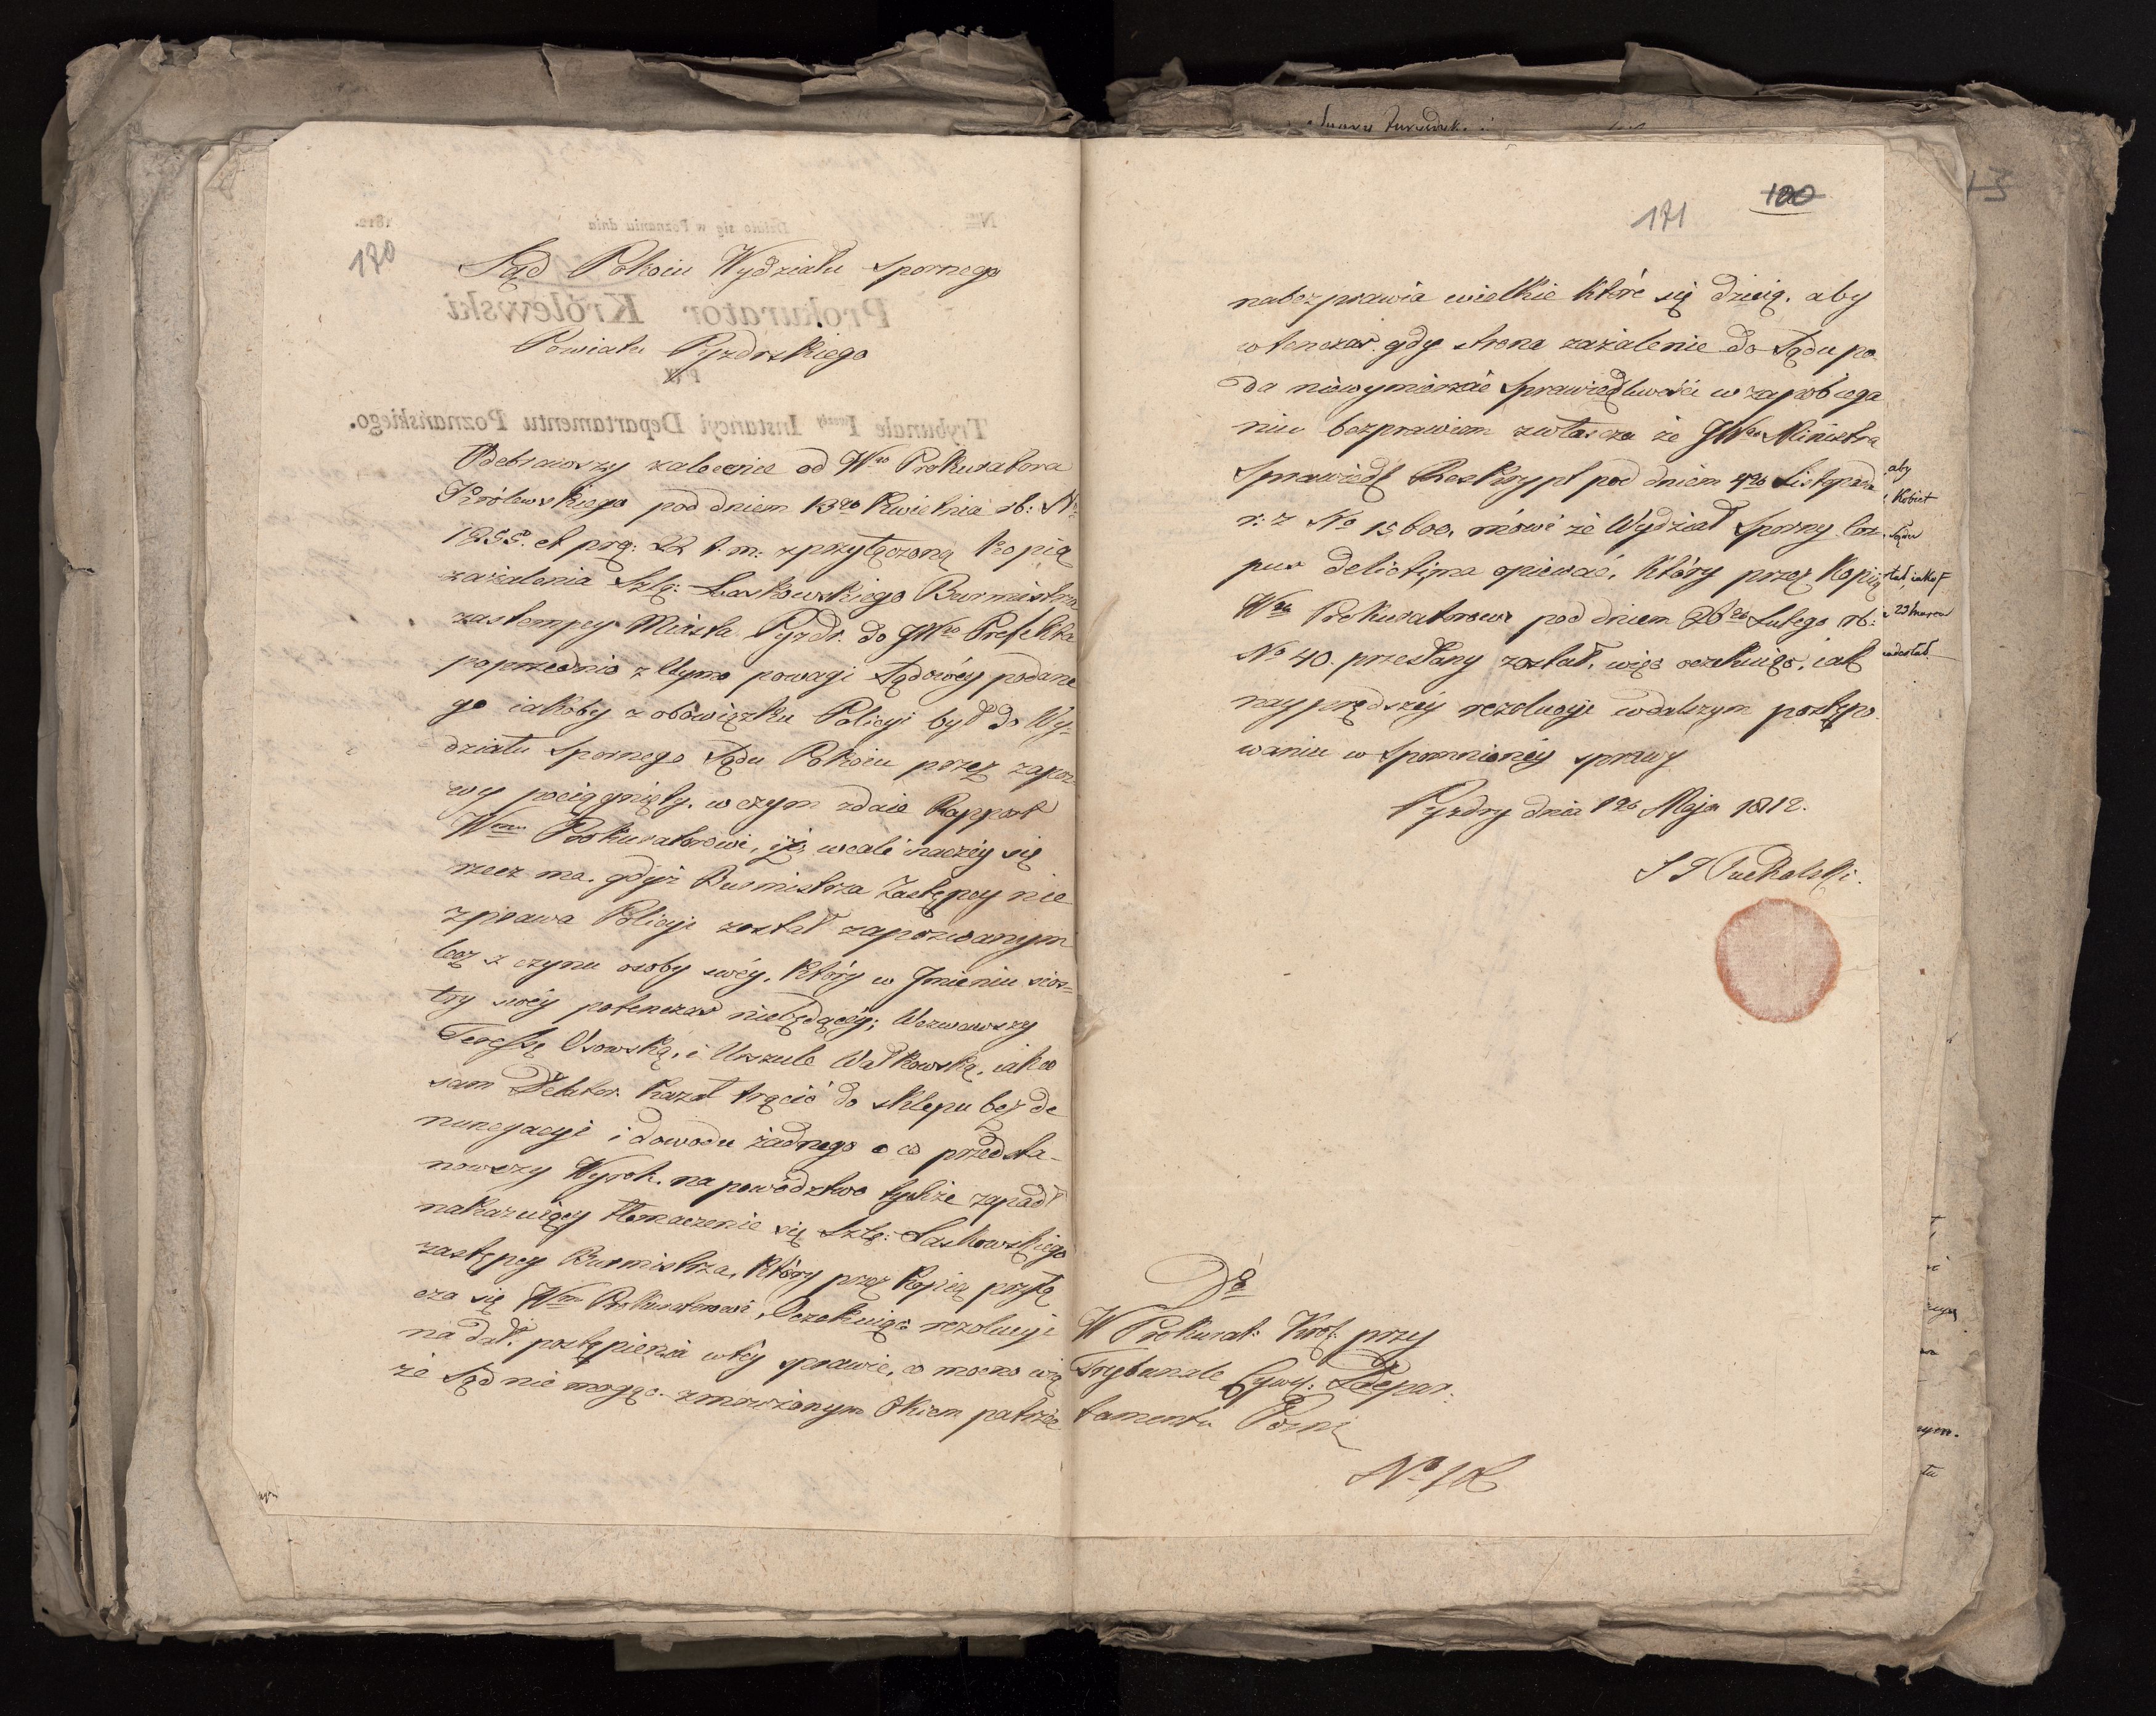 170
Sąd Pokoiu Wydziału Spornego
Powiatu Pyzdrskiego
Odebrawszy zalecenie od Wgo Prokuratora
Królewskiego pod dniem 13go Kwietnia rb: No
1255. et prę: 22 t. m: z przyłączoną kopią
zażalenia Szlę: Laskowskiego Burmistrza
zastempcy Miasta Pyzdr. do JWgo Prefekta
poprzednio z Utymo powagi Sądowéy podane
go iakoby z obowiązku Policyi był do Wy-
działu Spornego Sądu Pokoiu przez zapoz-
wy pociągnięty. w czym zdaie Rapport
Wmu Prokuratorowi, iż wcale inaczéy się
rzecz ma. gdyż Burmistrza Zastępcy nie
z prawa Policyi został zapozwanym
lecz z czynu osoby swéy, który w Jmieniu sios-
try swéy potenczas niebędącéy; Wezwawszy
Teressę Osowską, i Urszule Watkowską, iako
sam Delator kazał trącić do sklepu bez de
nuncyacyi i dowodu żadnego o co przedsta-
nowczy Wyrok. na powództwo tychże zapadł
nakazuiący tłomaczenie się Szlę: Laskowskiego
zastępcy Burmistrza, który przez kopią przyłą
cza się Wmu Prokuratorowi, Oczekuiąc rezolucyi
na dal. postąpienia w téy sprawie, co mocno
że Sąd nie mogąc zmrużonym okiem patrzéc
171
100
na bezprawia wielkie które się dzieią. aby
w tenczas gdy strona zażalenie do Sądu po
da niewymierzać Sprawiedliwości w zapobiega
niu bezprawiom zwłascza że JWgo Ministra
Sprawiedl Reskrypt pod dniem 4go Listopada
r: z No 15600. mówi że Wydział Sporny Cor
pus delicti ma opiewać, który przez kopią
Wmu Prokuratorowi pod dniem 26go Lutego rb:
No 40. przesłany został, więc oczekuiąc, iak
nayprędszéy rezolucyi w dalszym postępo
waniu w spomnionéy sprawy
Pyzdry dnia 1go Maja 1812.
Do
W Prokurat: Król: przy
Trybunale Cywl: Depar.
tamentu Pozn:
aby
Kobiet
Sądu
23 Marca